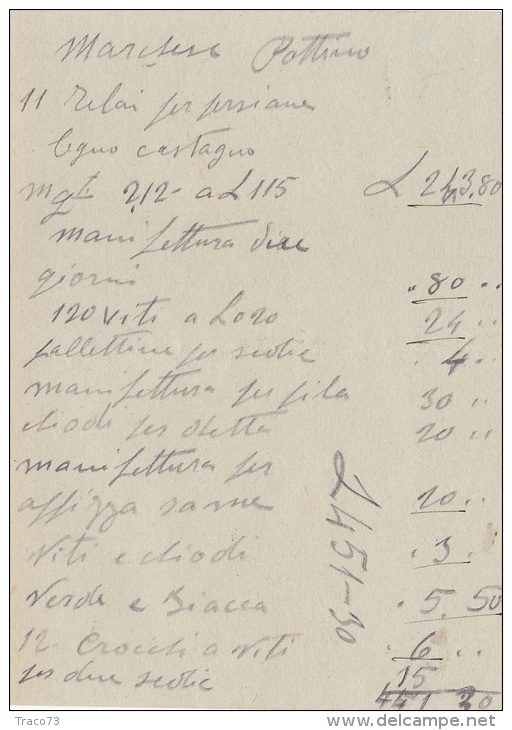 Marchese Pottino
11 Telai per persiane
legno castagno
mqt 2,12 - a L 115 L 243.80
manifettura due
giorni " 80 "
120 viti a L 0 20 24 "
pallettine per sedie 4 "
manifettura per pila 30 "
chiodi per detta 20 "
manifettura per
10 "
viti e chiodi " 3 "
Verde e Biacca " 5.50
12 Crocchi a viti 6 "
per due sedie 15
451 30
L 451-30
Traco73
www.delcampe.net